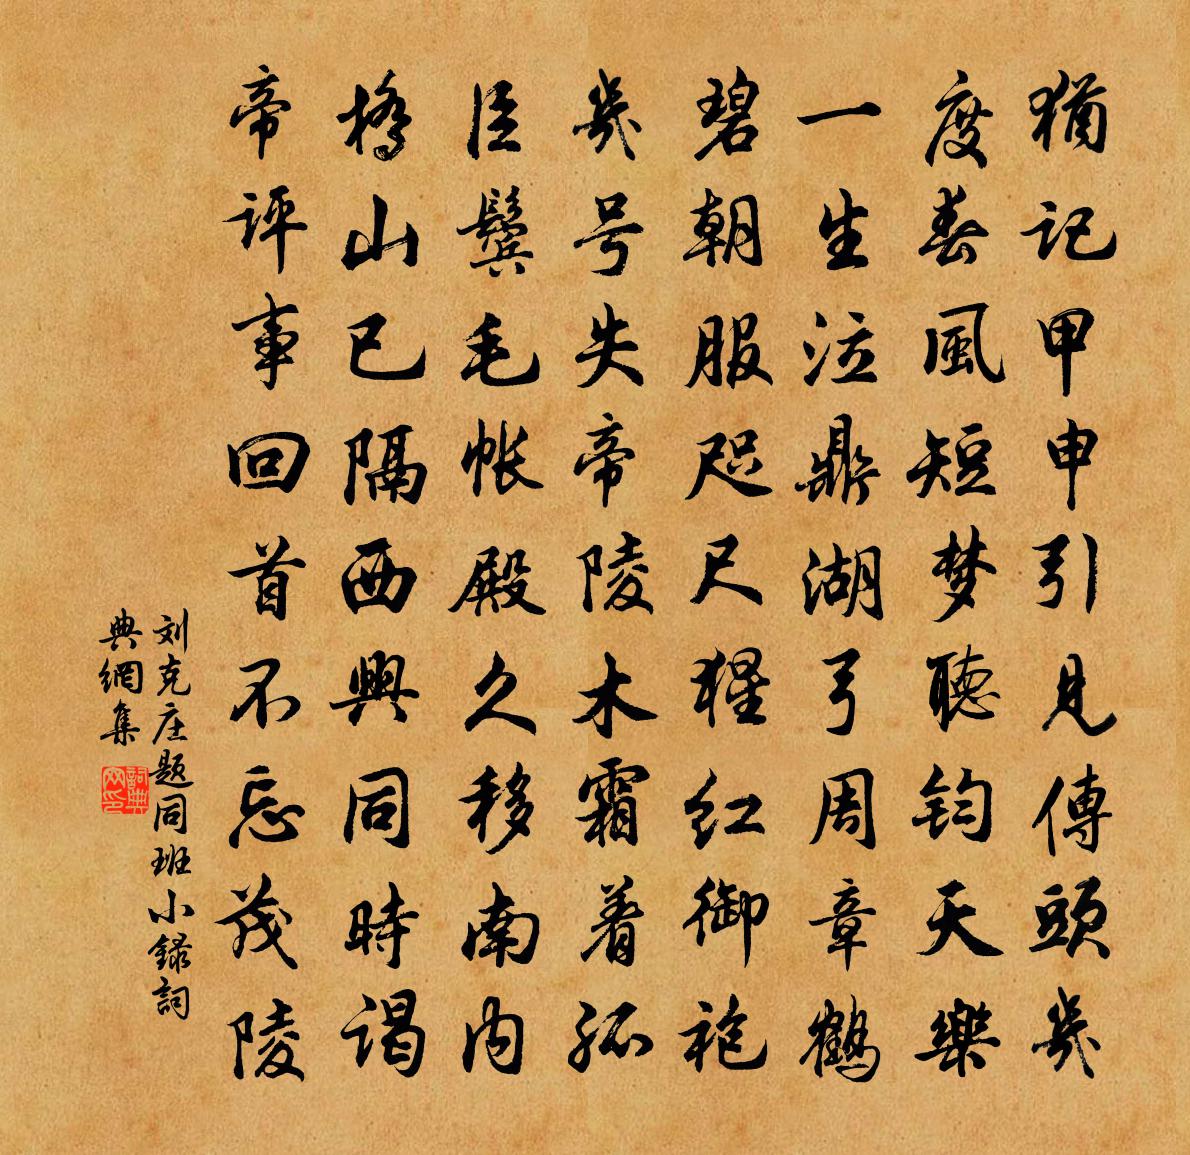 猶记甲申引見傳頭幾
度春風短梦聽钧天樂
一生泣鼎湖弓周章鶴
碧朝服咫尺猩红御袍
幾号失帝陵木霜着孤
臣鬢毛帐殿久移南内
橋山已隔西興同時谒
帝评事回首不忘茂陵
刘克庄题同班小録詞
典網集
詞典网印